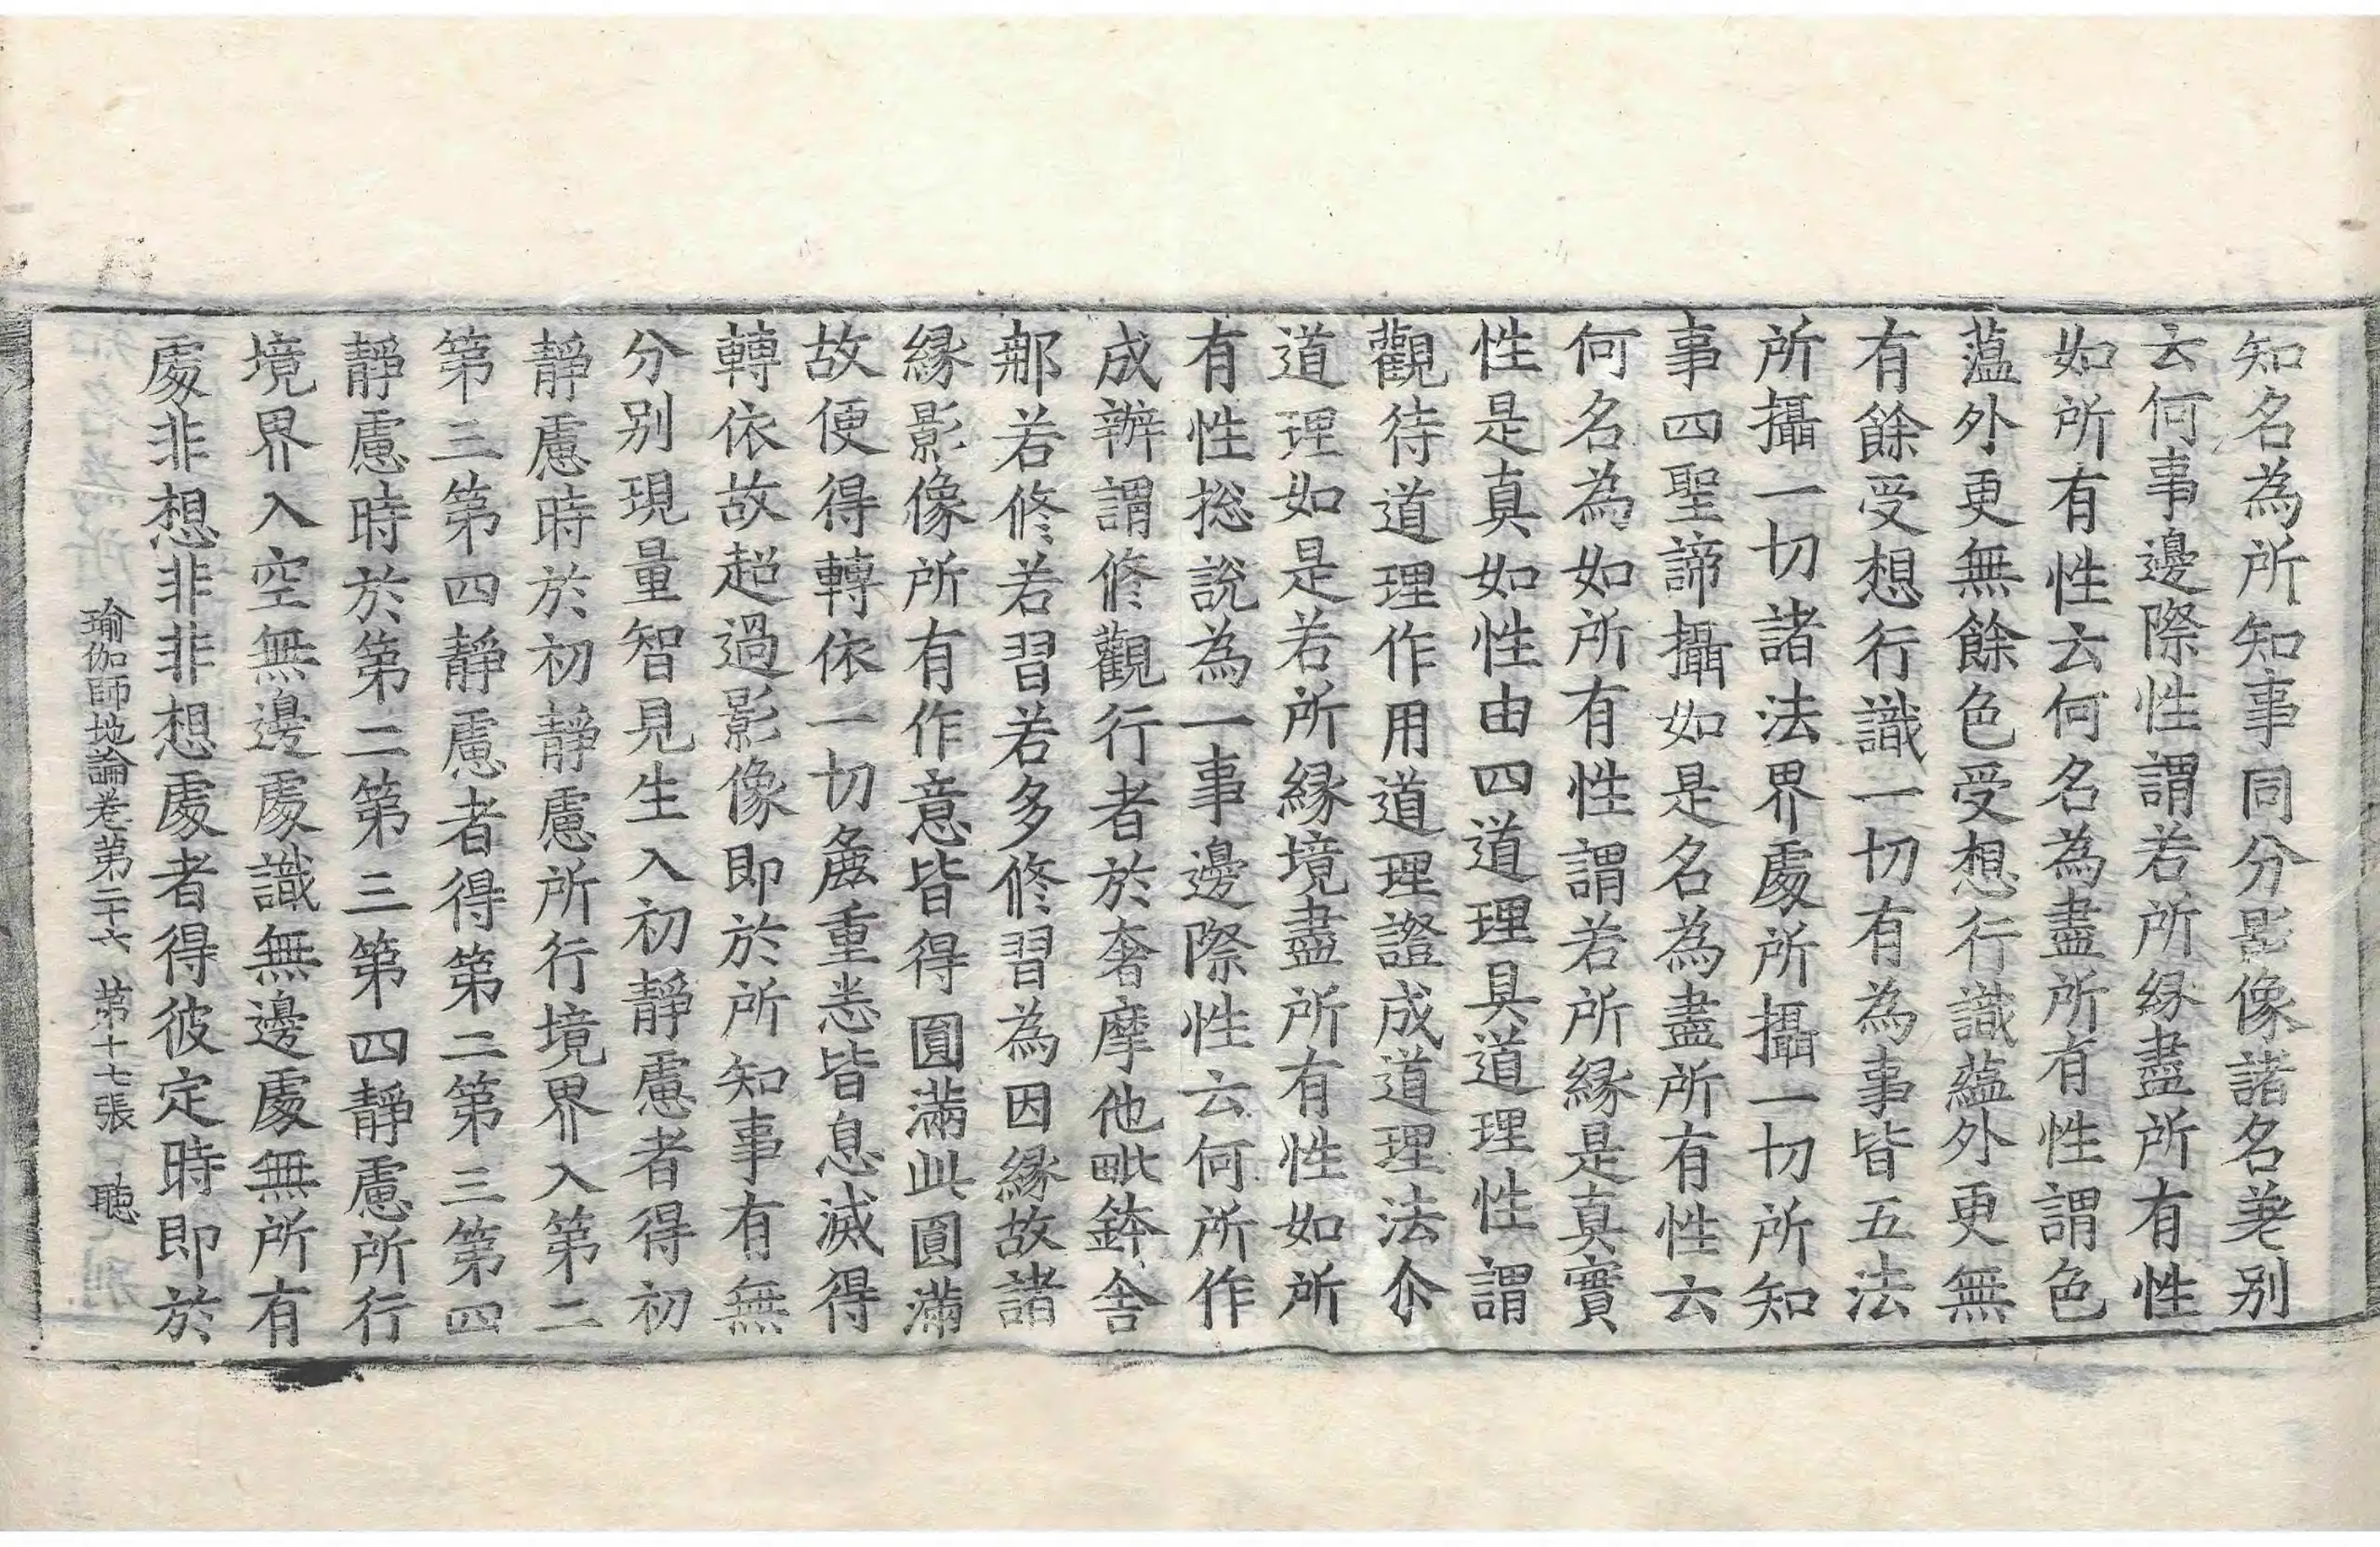 知名為所知事同分影像諸名差别
云何事邊際性謂若所縁盡所有性
如所有性云何名為盡所有性謂色
蕰外更無餘色受想行識蘊外更無
有餘受想行識一切有為事皆五法
所攝一切諸法界處所攝一切所知
事四聖諦攝如是名為盡所有性云
何名為如所有性謂若所縁是真實
性是真如性由四道理具道理性謂
觀待道理作用道理證成道理法尒
道理如是若所縁境盡所有性如所
有性捴說為一事邊際性云何所作
成辦謂修觀行者於奢摩他毗鉢舍
那若修若習若多修習為因縁故諸
縁影像所有作意皆得圓滿此圓滿
故便得轉依一切麁重悉皆息滅得
轉依故超過影像即於所知事有無
分别現量智見生入初靜慮者得初
靜慮時於初靜慮所行境界入第二
第三第四靜慮者得第二第三第四
靜慮時於第二第三第四靜慮所行
境界入空無邊處識無邊處無所有
處非想非非想處者得彼定時即於
瑜伽師地論卷第二十六 第十七張 聴